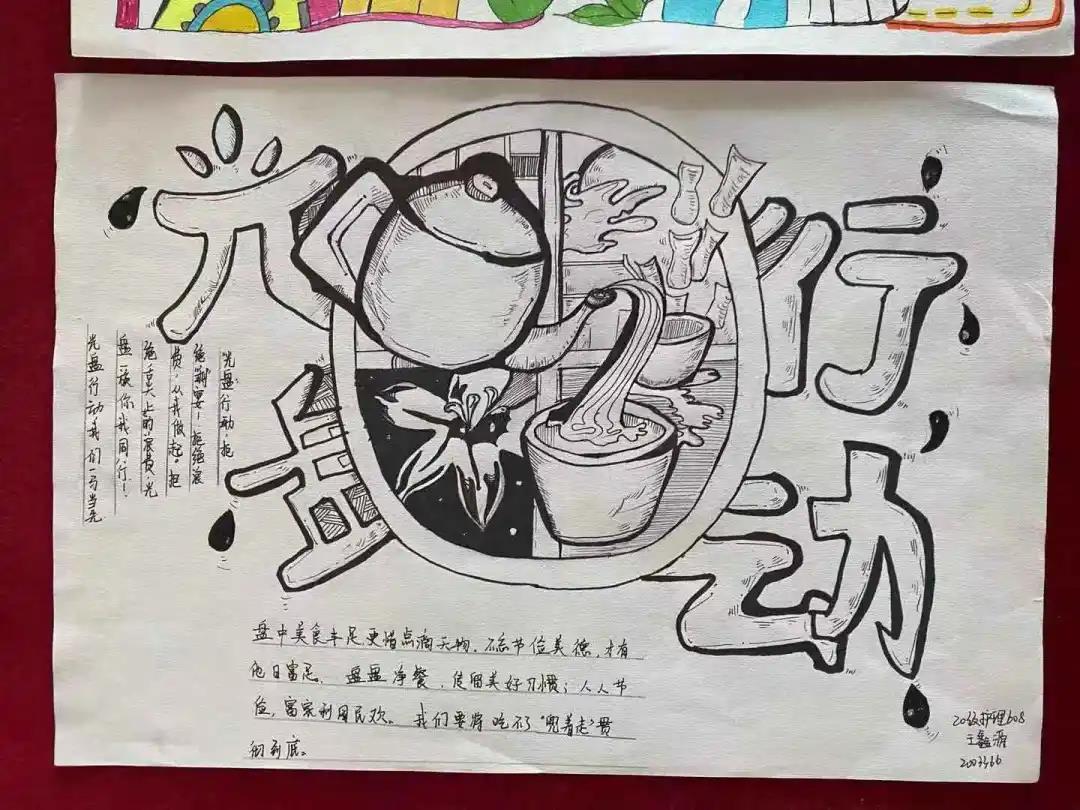 光盘
行动
光盘行动,拒
绝剩宴!拒绝浪
费,从我做起。拒
绝舌尖上的浪费,光
盘一族你我同行!
光盘行动我们一马当先
盘中美食丰足更惜点滴天物,不忘节俭美德,才有
他日富足. 盘盘净餐,使留美好习惯;人人节
俭,富家利国民欢。我们要将吃不了“兜着走”贯
彻到底。
20级护理608
王鑫